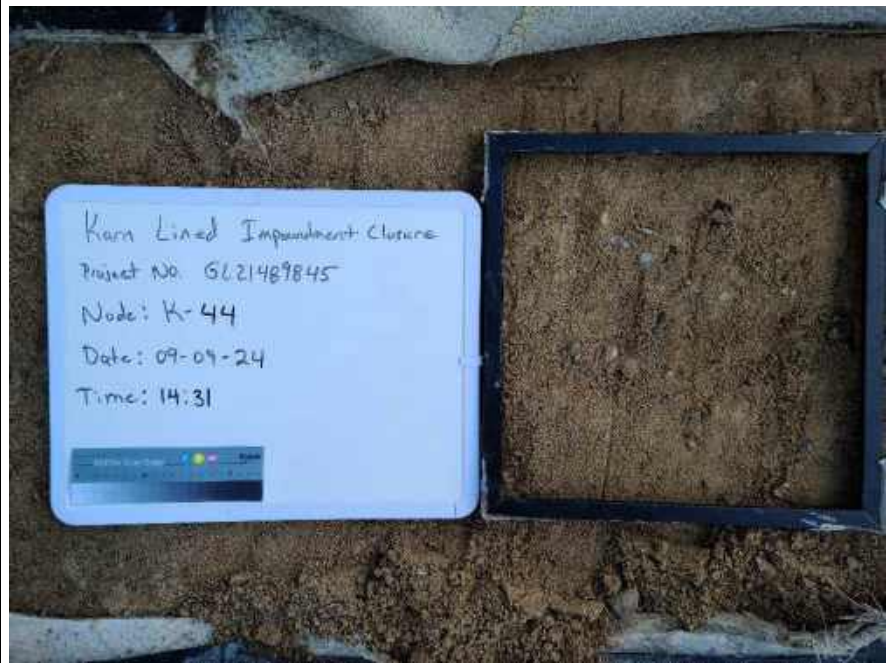 Karn Lined Impoundment Closure
Project No. GL21489845
Node: K-44
Date: 09-09-24
Time: 14:31
Kodak